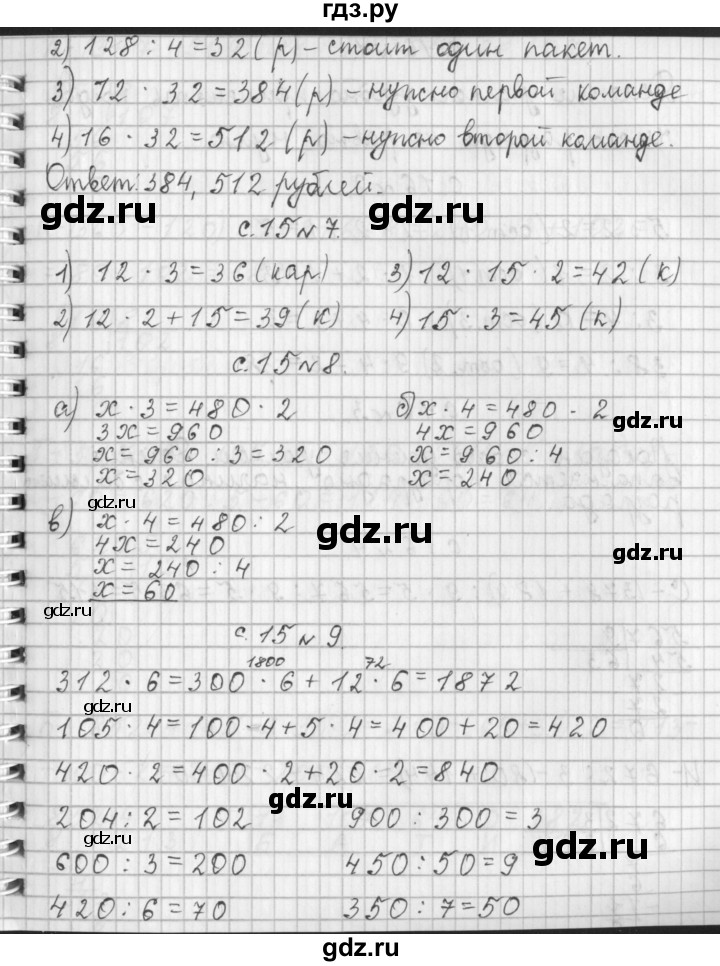 гдз.ру
2) 128 : 4 = 32 (р) – стоит один пакет.
3) 72 · 32 = 384 (р) – нужно первой команде
4) 16 · 32 = 512 (р) – нужно второй команде.
Ответ: 384, 512 рублей.
gdz.ru
gdz.ru
с. 15 № 7.
1) 12 · 3 = 36 (кар)
3) 12 · 15 · 2 = 42 (к)
2) 12 · 2 + 15 = 39 (к)
4) 15 · 3 = 45 (к)
с. 15 № 8.
а) х · 3 = 480 · 2
3х = 960
х = 960 : 3 = 320
х = 320
б) х · 4 = 480 · 2
gdz.ru
4х = 960
х = 960 : 4
х = 240
gdz.ru
в) х · 4 = 480 : 2
gdz.ru
4х = 240
gdz.ru
х = 240 : 4
х = 60
gdz.ru
с. 15 № 9.
1800 72
312 · 6 = 300 · 6 + 12 · 6 = 1872
gdz.ru
gdz.ru
105 · 4 = 100 · 4 + 5 · 4 = 400 + 20 = 420
420 · 2 = 400 · 2 + 20 · 2 = 840
gdz.ru
204 : 2 = 102
900 : 300 = 3
gdz.ru
gdz.ru
600 : 3 = 200
450 : 50 = 9
420 : 6 = 70
350 : 7 = 50
gdz.ru